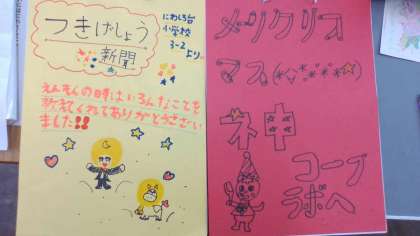 つきげしょう
新聞
にわしろ台
小学校
3-2
より
えんそくの時はいろんなことを
教えてくれてありがとうござい
ました!!
メリクリス
マス
ネ申
コープ
ラボへ